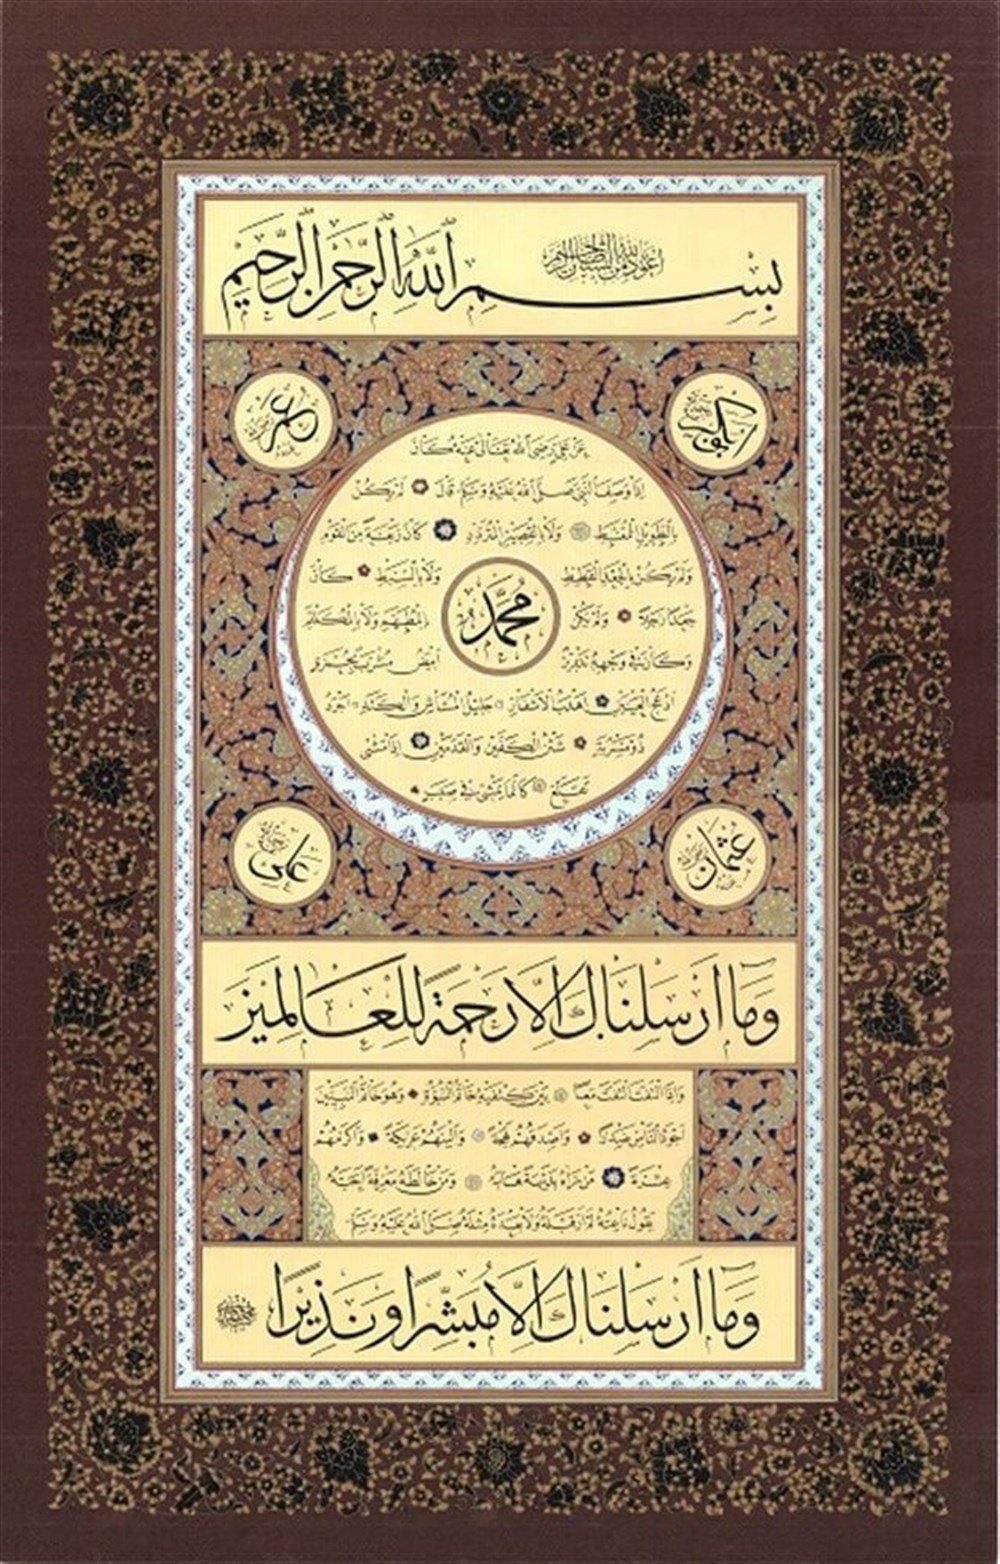 اعوذ بالله من الشيطان الرجيم
بِسْمِ اللهِ الرَّحْمٰنِ الرَّحِيمِ
ابو بكر
عمر
عن علي رضي الله تعالى عنه كان
اذا وصف النبي صلى الله عليه وسلم قال لم يكن
بالطويل الممغط ولا بالقصير المتردد كان ربعة من القوم
ولم يكن بالجعد القطط ولا بالسبط كان
محمد
جعدا رجلا ولم يكن بالمطهم ولا بالمكلثم
وكان في وجهه تدوير ابيض مشرب بحمرة
ادعج العينين اهدب الاشفار جليل المشاش والكتد اجرد
ذو مسربة شثن الكفين والقدمين اذا مشى
تقلع كانما يمشي في صبب
عثمان
علي
وَمَا اَرْسَلْنَاكَ اِلَّا رَحْمَةً لِلْعَالَمِينَ
واذا التفت التفت معا بين كتفيه خاتم النبوة وهو خاتم النبيين
اجود الناس صدرا واصدقهم لهجة والينهم عريكة واكرمهم
عشرة من رآه بديهة هابه ومن خالطه معرفة احبه
يقول ناعته لم ار قبله ولا بعده مثله صلى الله عليه وسلم
وَمَا اَرْسَلْنَاكَ اِلَّا مُبَشِّرًا وَنَذِيرًا